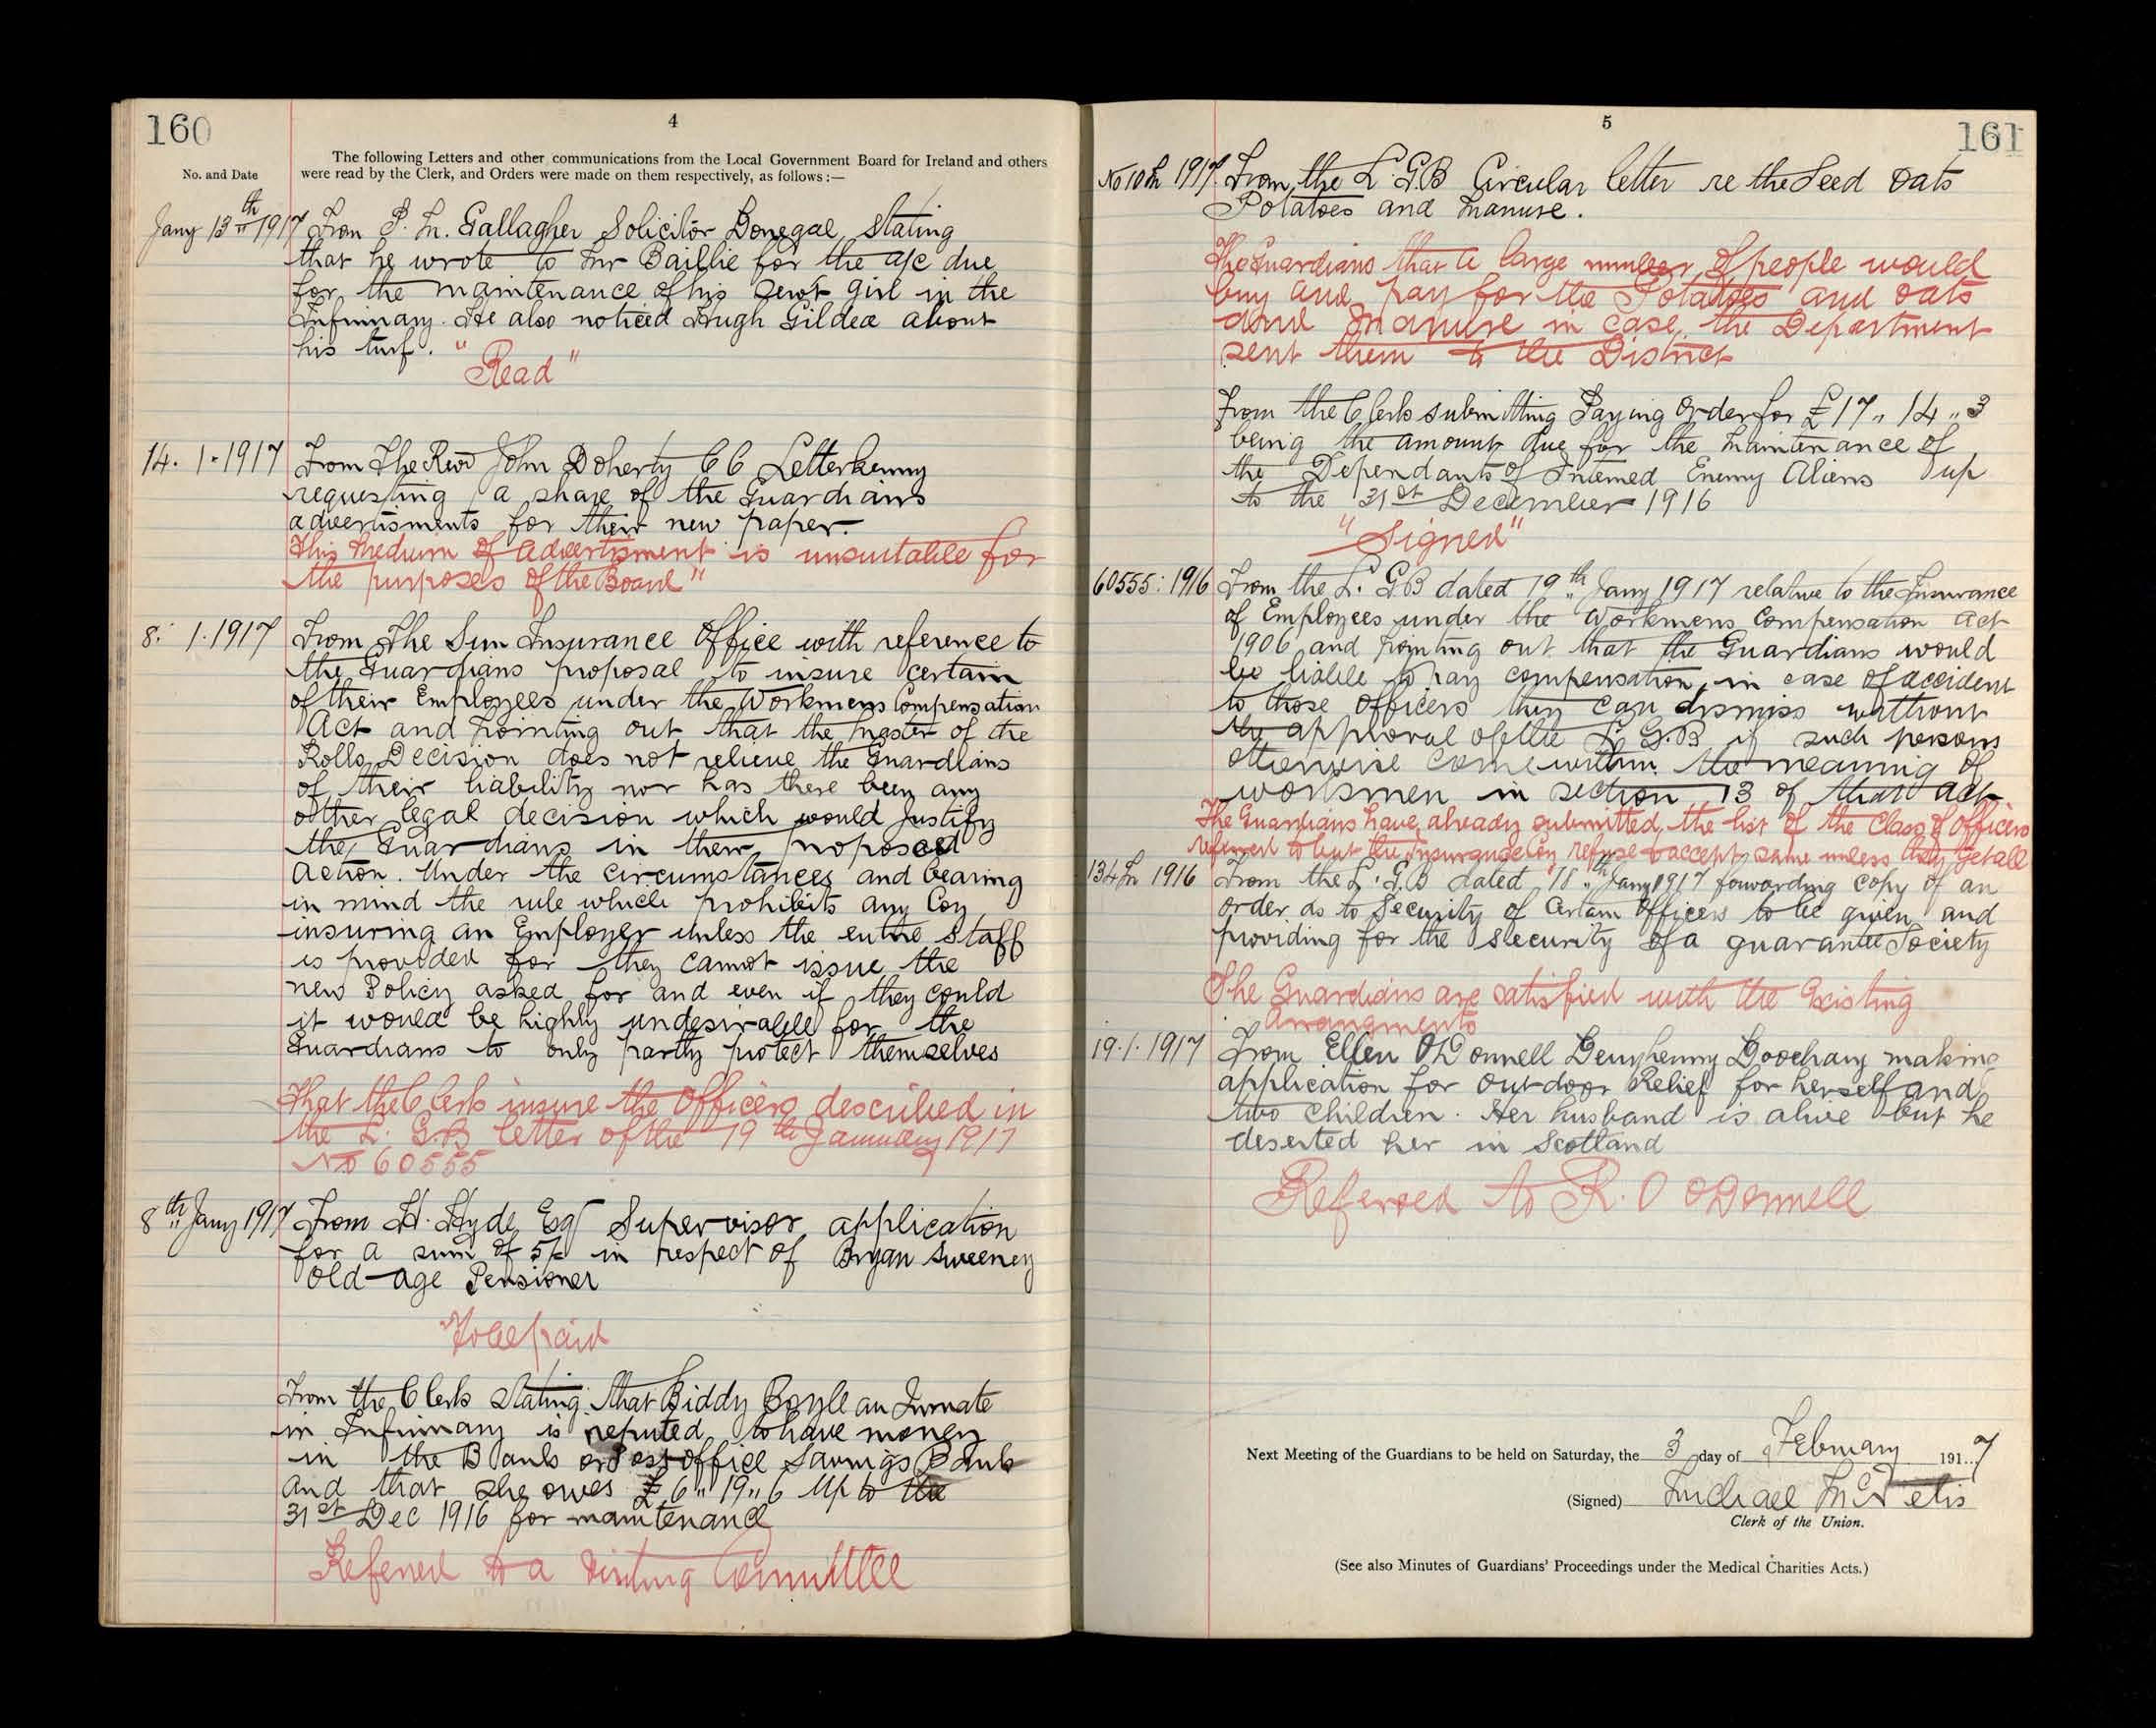 160
4
The following Letters and other communications from the Local Government Board for Ireland and others
No. and Date
were read by the Clerk, and Orders were made on them respectively, as follows :—
Jany 13th 1917 From P. M. Gallagher Solicitor Donegal stating
that he wrote to Mr Baillie for the a/c due
for the maintenance of his servt girl in the
Infirmary. He also noticed Hugh Gildea about
his turf.
"Read"
14. 1. 1917 From The Revd John Doherty CC Letterkenny
requesting a share of the Guardians
advertisments for their new paper.
This Medium of advertisment is unsuitable for
the purposes of the Board"
8. 1. 1917 From The Sun Insurance Office with reference to
the Guardians proposal to insure certain
of their Employees under the Workmens Compensation
Act and Pointing out that the Master of the
Rolls Decision does not relieve the Guardians
of their liability nor has there been any
other legal decision which would Justify
the Guardians in their proposed
action. Under the circumstances and bearing
in mind the rule which prohibits any Coy
insuring an Employer unless the entire staff
is provided for they cannot issue the
new Policy asked for and even if they could
it would be highly undesirable for the
Guardians to only partly protect themselves
That the Clerk insure the Officers described in
the L. G.B letter of the 19th January 1917
No 60555
8th Jany 1917 From H. Hyde Esq Supervisor application
for a sum of 5/= in respect of Bryan Sweeney
Old-age Pensioner
"To be paid
From the Clerk stating that Biddy Boyle an Inmate
in Infirmary is reputed to have money
in the Bank or Post office Savings Bank
and that she owes £6"19"6 up to the
31st Dec 1916 for maintenance
Referred to a Visiting Committee
5
161
No 10 M 1917 From the L. G.B Circular letter re the Seed Oats
Potatoes and Manure.
The Guardians that a large number of people would
buy and pay for the Potatoes and oats
and Manure in case the Department
sent them to the District
From the Clerk submitting Paying Order for £17" 14" 3
being the amount due for the maintenance of
the Dependants of Interned Enemy Aliens up
to the 31st December 1916
"Signed"
60555: 1916 From the L. G.B dated 19th Jany 1917 relative to the Insurance
of Employees under the Workmens Compensation Act
1906 and Pointing out that the Guardians would
be liable to pay compensation in case of accident
to those Officers they can dismiss without
the approval of the L. G.B if such persons
otherwise come within the meaning of
worksmen in section 13 of that act
The Guardians have already submitted the list of the Class of Officers
referred to but the Insurance Coy refuse to accept same unless they get all
134 M 1916 From the L. G.B dated 18th Jany 1917 forwarding copy of an
order as to Security of Certain Officers to be given and
providing for the security of a guarantee Society
The Guardians are satisfied with the Existing
Arrangments
19. 1. 1917 From Ellen O'Donnell Doochary making
application for Outdoor Relief for herself and
two children. Her husband is alive but he
deserted her in Scotland
Referred to R. O ODonnell
Next Meeting of the Guardians to be held on Saturday, the 3 day of February 1917
(Signed) Michael McNelis
Clerk of the Union.
(See also Minutes of Guardians' Proceedings under the Medical Charities Acts.)